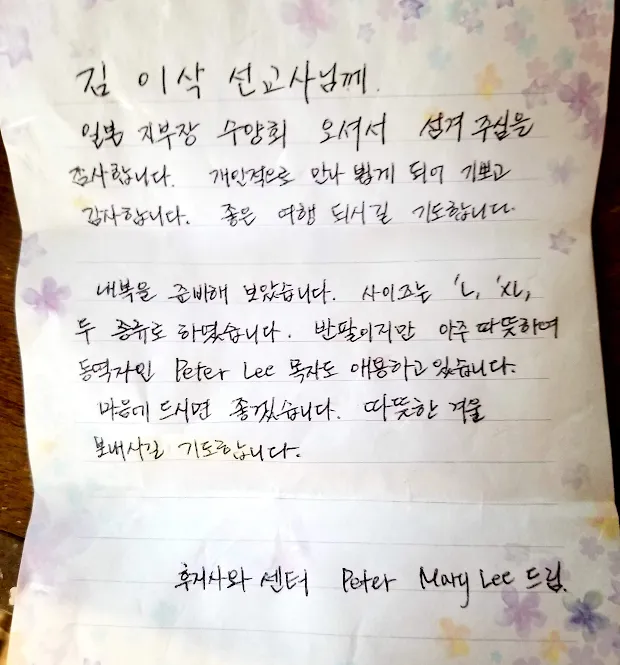 김 이삭 선교사님께.
일본 지부장 수양회 오셔서 섬겨 주심을
감사합니다. 개인적으로 만나 뵙게 되어 기쁘고
감사합니다. 좋은 여행 되시길 기도합니다.
내복을 준비해 보았습니다. 사이즈는 'L, 'XL,
두 종류로 하였습니다. 반팔이지만 아주 따뜻하며
동역자인 Peter Lee 목자도 애용하고 있습니다.
마음에 드시면 좋겠습니다. 따뜻한 겨울
보내시길 기도합니다.
후지사와 센터 Peter Mary Lee 드림.